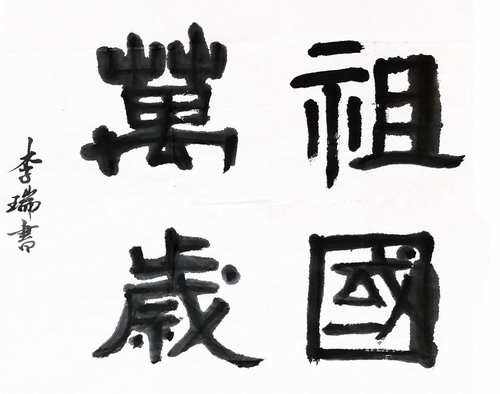 祖國
萬歲
李瑞書